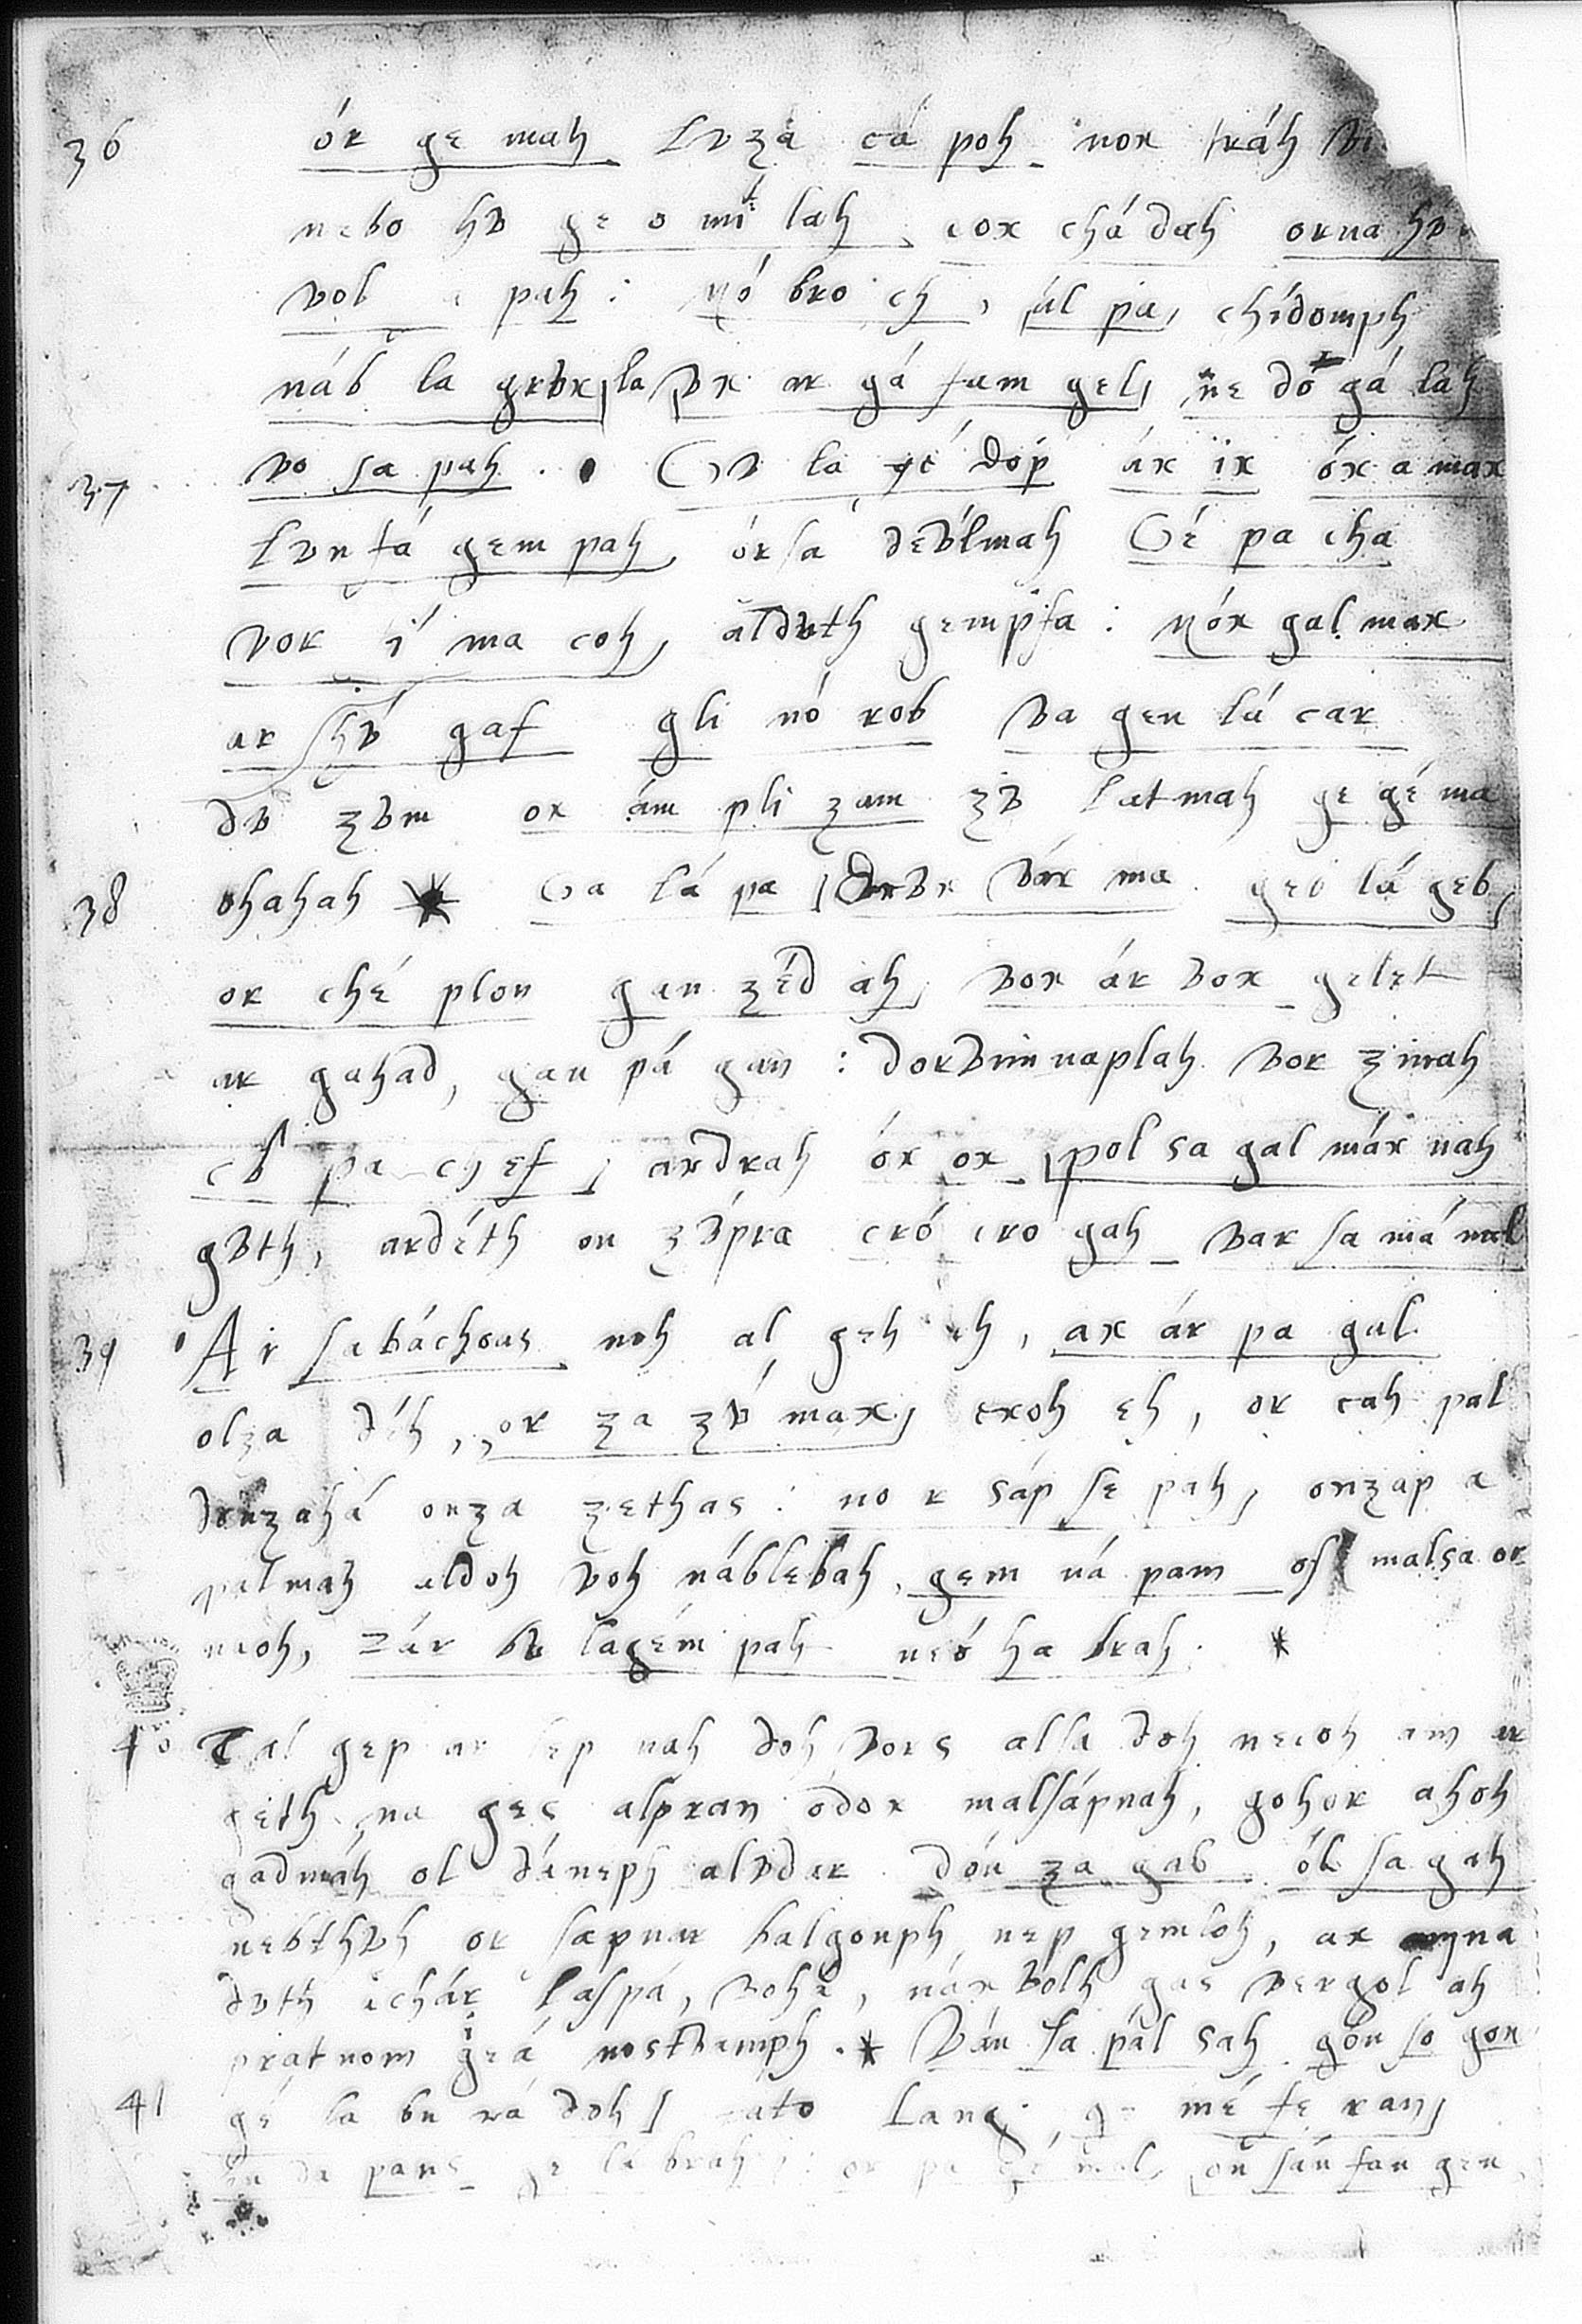 36 ór ge mah luza cá poh nox tráh
nebo hu ge o mí lah, cox chá dah orna hu
vol pah : nó bro ch, ál pa, chídomph
náb la grux la ux ar gá fam gel, ne do gá lah
37 vo sa pah . Gu la gé dóp áx ix óx a max
lun fá gem pah, órsa deúlmah Gé pa cha
vor í ma coh, alduth gempfa : nóx gal max
ar hú gaf gli nó rob va gen lá car
du zum ox ám pli zam zu latmah ge gé ma
38 ohahah * Ga lá pa vár ma geo lá geb,
or ché plon gan zéd ah, vox ár vox gelet
ar gahad, gan pá gan : dorvminaplah vor zinah
cú pa chef, ardrah óx ox, pol sa gal máx nah
guth, ardéth on zúpra cró cro gah var sa má nal
39 Ar sabáchoas noh al geh, ax ár pa gal
olza déh, or za zú max, exoh eh, or cah pal
donzahá onza zethas : no r sáp se pah, onzap a
palmah aldoh voh náblebah, gem ná pam os malsa or
naoh, zár lagém pah neó ha brah. *
40 Cal gep ar sep nah doh vors alsa doh necoh am ar
geth na ges alpran odox malsápnah, gohor ahoh
gadmáh ol dáneph aludar dón za gab ól sa gah
nebthuh or sapnar balgonph nep gemloh, ax amna
duth achár laspá, vohá, náx volh gas vergol ah
pratnom geá nostvamph . * Ván sa pál sah gón so gon
41 gé la bu rá doh, lang mé fe ran,
pans ge lá brah : on sán fan gen